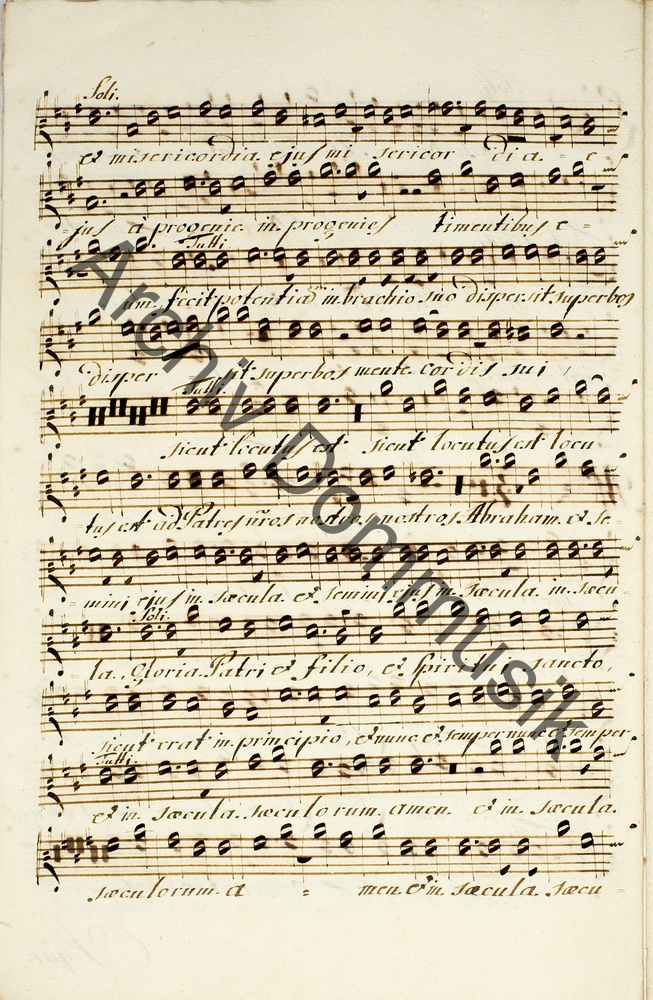 Soli.
et misericordia ejus mi sericor di a = e
= jus a progenie in progenies timentibus e =
Tutti
um. fecit potentiam in brachio suo dispersit superbos
disper = sit superbos mente cordis sui,
Tutti.
sicut locutus est sicut locutus est locu
= tus est ad Patres nros nostros nostros Abraham. et se =
= mini ejus in sæcula. et semini ejus in sæcula. in sæcu =
Soli.
la. Gloria Patri et filio, et Spiritui sancto,
sicut erat in principio, et nunc et semper nunc et semper
Tutti.
et in sæcula. sæculorum. amen. et in sæcula.
sæculorum. a = men. et in sæcula. sæcu =
Archiv Dommusik